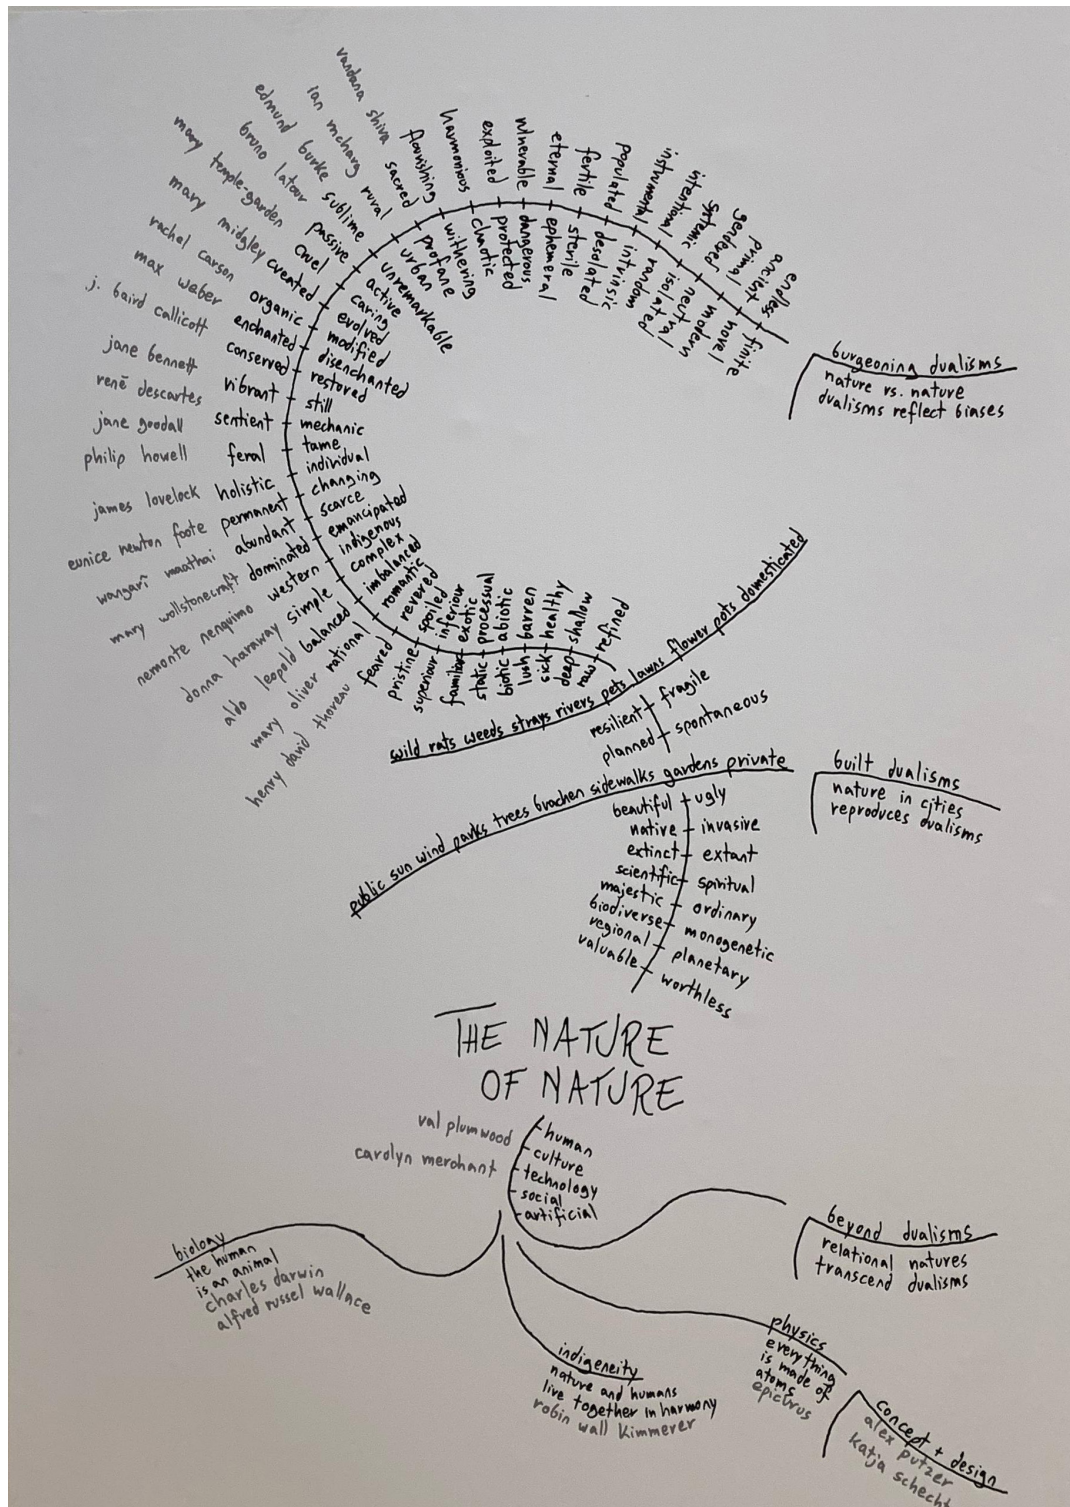 vandana shiva
ian mcharg
edmund burke
bruno latour
mary temple-garden
mary midgley
rachel carson
max weber
j. baird callicott
jane bennett
renē descartes
jane goodall
philip howell
james lovelock
eunice newton foote
wangarĩ maathai
mary wollstonecraft
nemonte nenquimo
donna haraway
aldo leopold
mary oliver
henry david thoreau
endless finite
ancient novel
primal modern
gendered neutral
systemic isolated
intentional random
instrumental intrinsic
populated desolated
fertile sterile
eternal ephemeral
vulnerable dangerous
exploited protected
harmonious chaotic
flourishing withering
sacred profane
rural urban
sublime unremarkable
passive active
cruel caring
created evolved
organic modified
enchanted disenchanted
conserved restored
vibrant still
sentient mechanic
feral tame
holistic individual
permanent changing
abundant scarce
dominated emancipated
western indigenous
simple complex
balanced imbalanced
rational romantic
feared revered
pristine spoiled
superiour inferiour
familiar exotic
static processual
biotic abiotic
lush barren
sick healthy
deep shallow
raw refined
burgeoning dualisms
nature vs. nature
dualisms reflect biases
wild rats weeds strays rivers pets lawns flower pots domesticated
resilient fragile
planned spontaneous
public sun wind parks trees brachen sidewalks gardens private
built dualisms
nature in cities
reproduces dualisms
beautiful ugly
native invasive
extinct extant
scientific spiritual
majestic ordinary
biodiverse monogenetic
regional planetary
valuable worthless
THE NATURE
OF NATURE
val plumwood
carolyn merchant
human
culture
technology
social
artificial
beyond dualisms
relational natures
transcend dualisms
biology
the human
is an animal
charles darwin
alfred russel wallace
indigeneity
nature and humans
live together in harmony
robin wall kimmerer
physics
everything
is made of
atoms
epicurus
concept + design
alex putzer
katja schecht